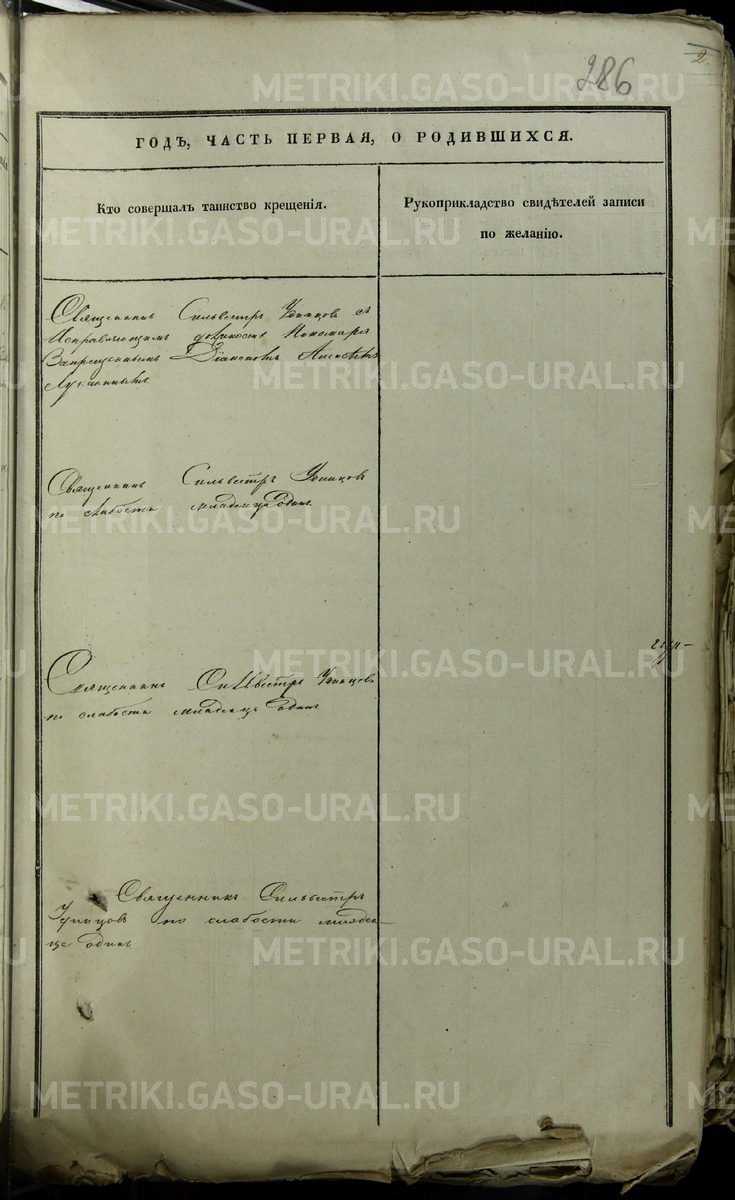 286
2.
ГОДЪ, ЧАСТЬ ПЕРВАЯ, О РОДИВШИХСЯ.
Кто совершалъ таинство крещенія.
Рукоприкладство свидѣтелей записи
по желанію.
Священникъ Сильвестръ Удинцов съ
Исправляющимъ должность Пономаря
Запрещеннымъ Діакономъ Алексѣемъ
Священникъ Сильвестръ Удинцовъ
по слабости младенца одинъ
Священникъ Сильвестръ Удинцовъ
по слабости младенца одинъ
Священникъ Сильвестръ
Удинцовъ по слабости младен-
ца одинъ
METRIKI.GASO-URAL.RU